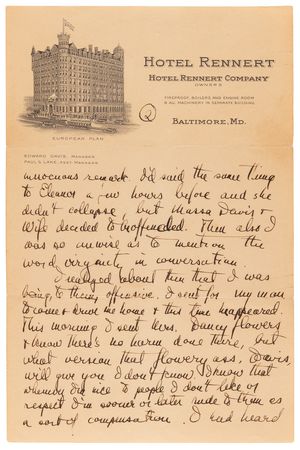 HOTEL RENNERT
HOTEL RENNERT COMPANY
OWNERS
FIREPROOF, BOILERS AND ENGINE ROOM
& ALL MACHINERY IN SEPARATE BUILDING.
BALTIMORE, MD.
2
EUROPEAN PLAN
EDWARD DAVIS, MANAGER
PAUL S. LAKE, ASST. MANAGER
innocuous remark. I'd said the same thing
to Eleanor a few hours before and she
didn't collapse, but Massa Davis &
Wife decided to be offended. Then also I
was so unwise as to mention the
word virginity in conversation.
I imagined about then that I was
being to them offensive. I sent for my man
to come & drive me home & this time he appeared.
This morning I sent Mrs. Davis flowers
& know there's no harm done there, but
what version that flowery ass, Davis,
will give you I don't know. I know that
when I'm nice to people I don't like or
respect I'm sooner or later rude to them as
a sort of compensation. I had heard